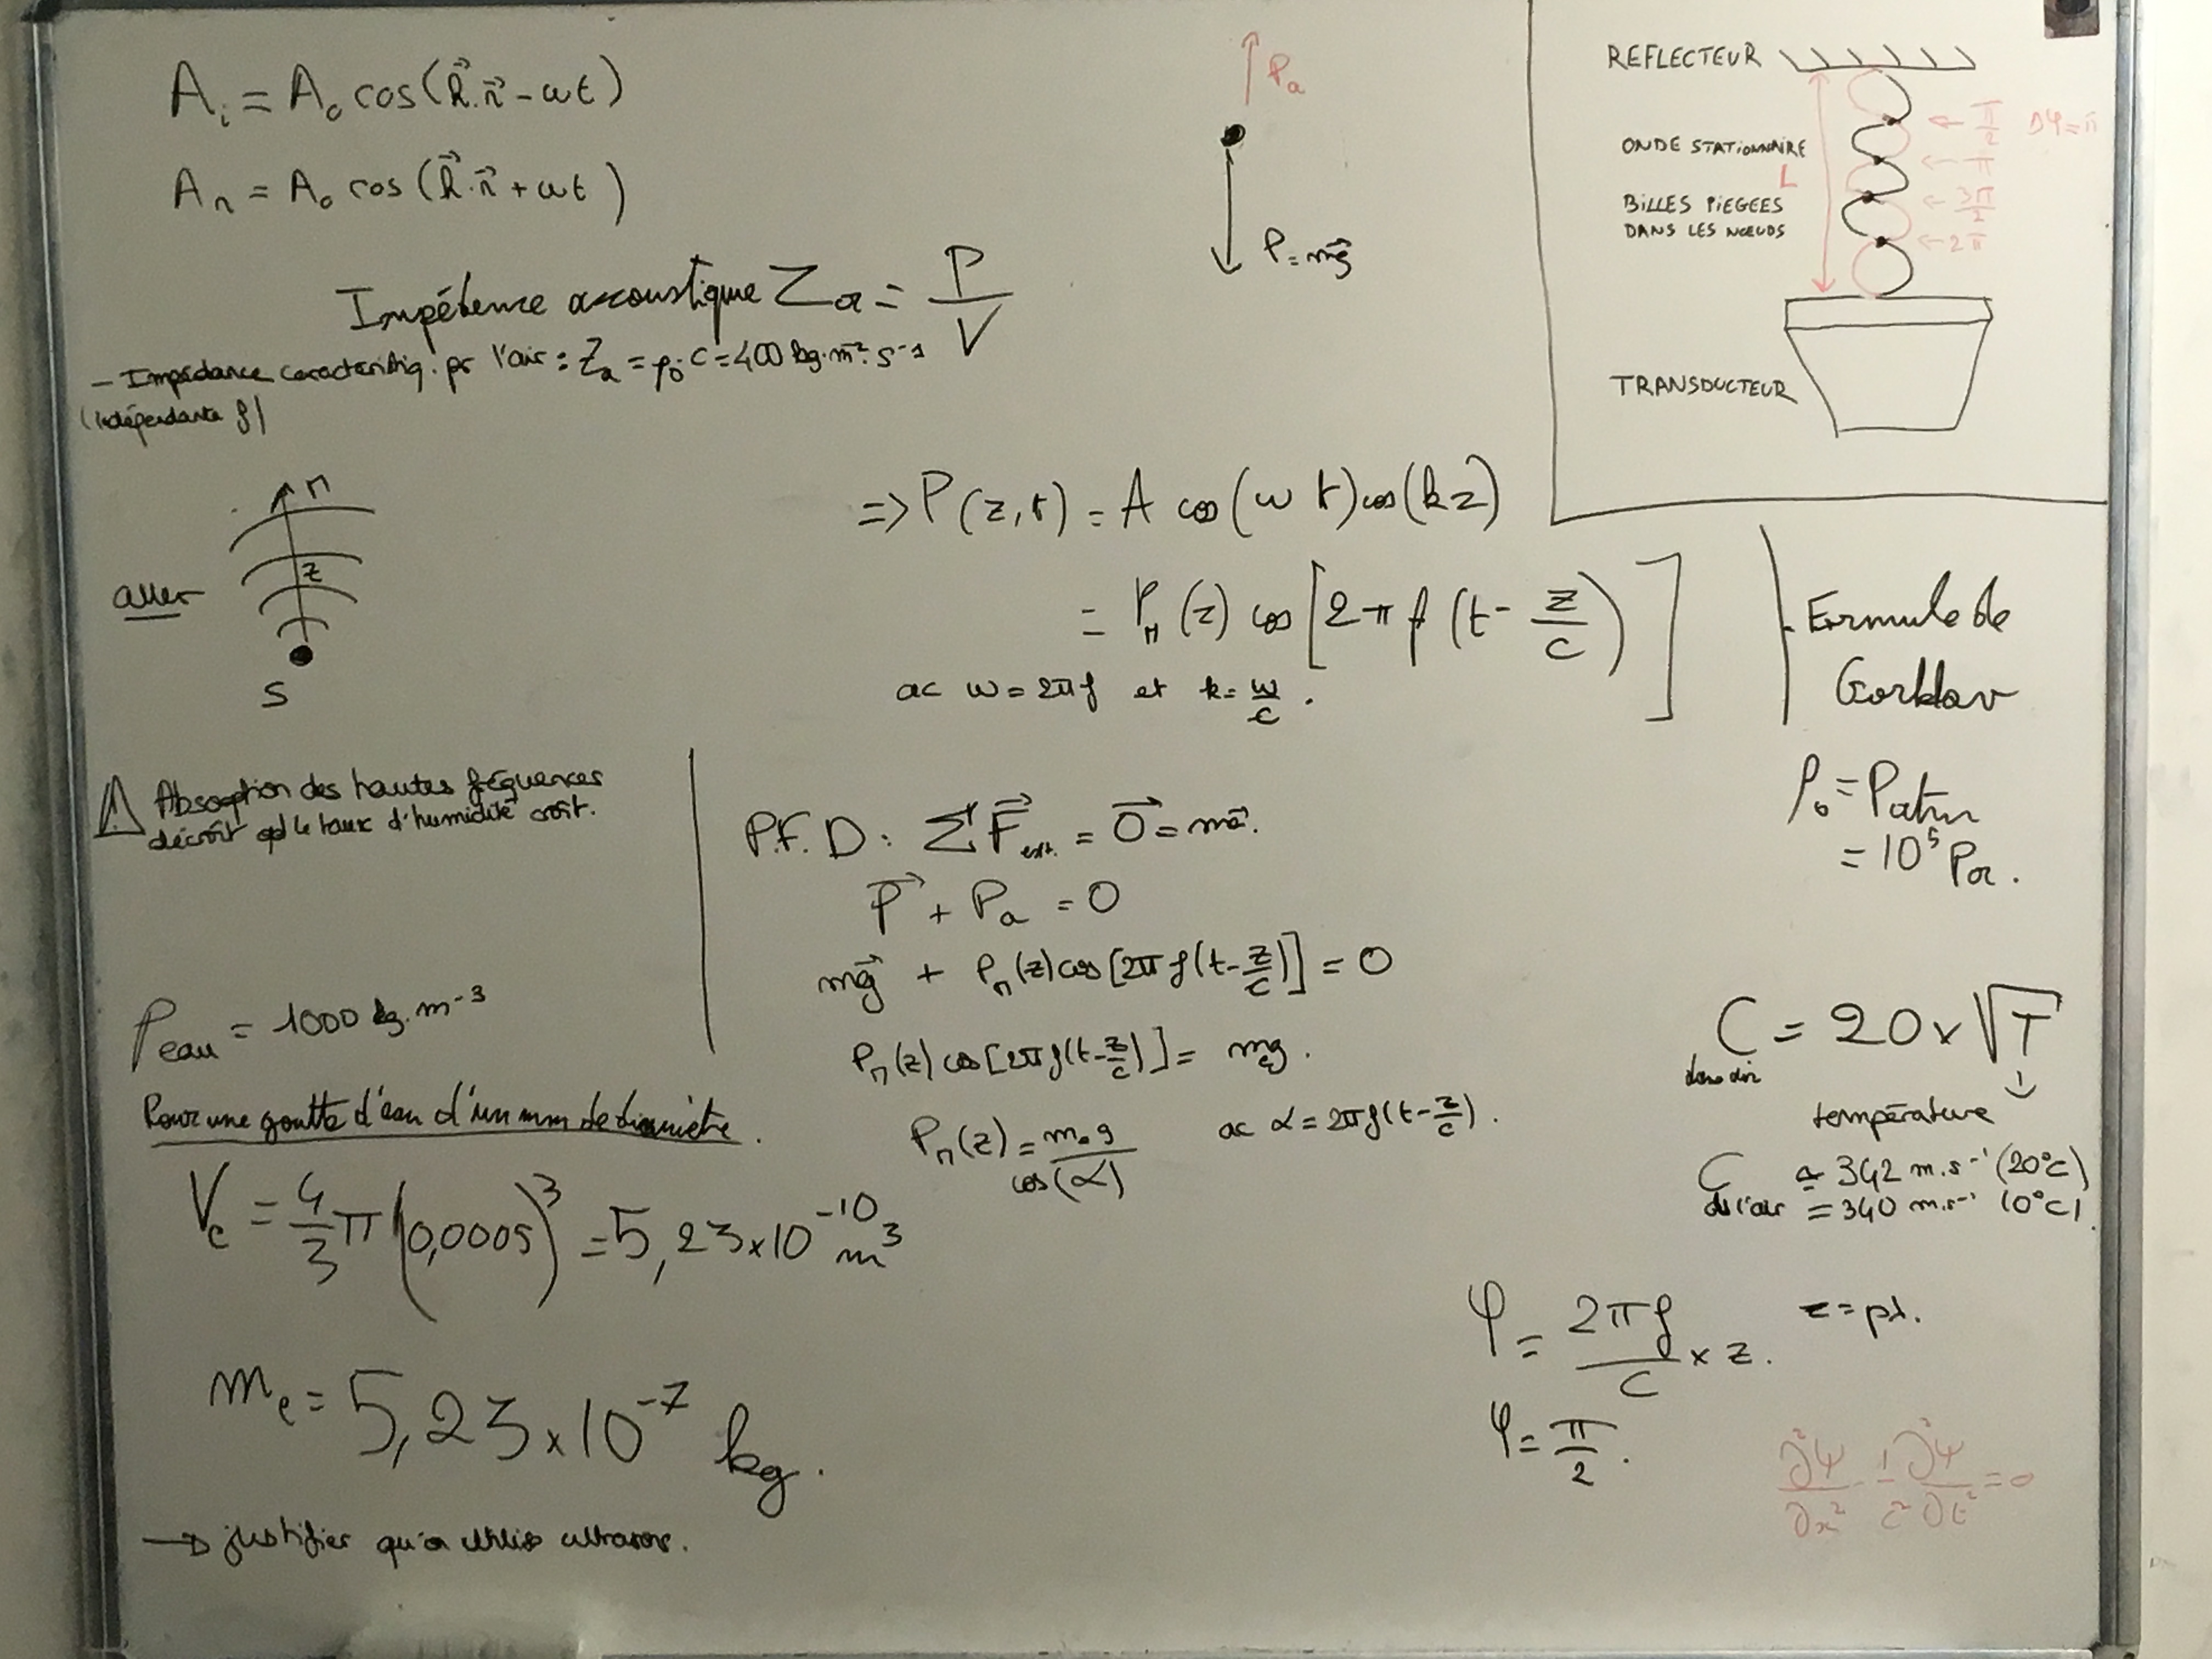 A_i = A_0 cos(k⃗.r⃗ - ωt)
A_r = A_0 cos(k⃗.r⃗ + ωt)
Impétence acoustique Z_a = P/V
- Impédance caractéristiq. pr l'air : Z_a = ρ_0.C = 400 kg.m⁻².s⁻¹
(indépendante f)
P_a
P = mg⃗
REFLECTEUR
ONDE STATIONNAIRE
L
BILLES PIEGEES
DANS LES NŒUDS
TRANSDUCTEUR
← π/2 Δφ = π
← π
← 3π/2
← 2π
aller
n
z
S
=> P(z,t) = A cos(ωt) cos(kz)
= P_M(z) cos[2πf(t - z/c)]
ac ω = 2πf et k = ω/c.
Formule de
Gorklov
⚠ Absorption des hautes fréquences
décroît qd le taux d'humidité croît.
P.F.D : ΣF⃗_ext. = 0⃗ = ma⃗.
P⃗ + P_a = 0
mg⃗ + P_M(z) cos[2πf(t - z/c)] = 0
P_M(z) cos[2πf(t - z/c)] = m_e g.
P_M(z) = m_e g / cos(α) ac α = 2πf(t - z/c).
P_0 = Patm
= 10⁵ Pa.
ρ_eau = 1000 kg.m⁻³
Pour une goutte d'eau d'un mm de diamètre.
V_e = 4/3 π(0,0005)³ = 5,23×10⁻¹⁰ m³
m_e = 5,23×10⁻⁷ kg.
→ justifier qu'on utilise ultrasons.
C = 20×√T
dans air
température
C ≃ 342 m.s⁻¹ (20°C)
ds l'air = 340 m.s⁻¹ (0°C).
φ = 2πf/C × z. z = pλ.
φ = π/2.
∂²Ψ/∂x² - 1/c² ∂²Ψ/∂t² = 0